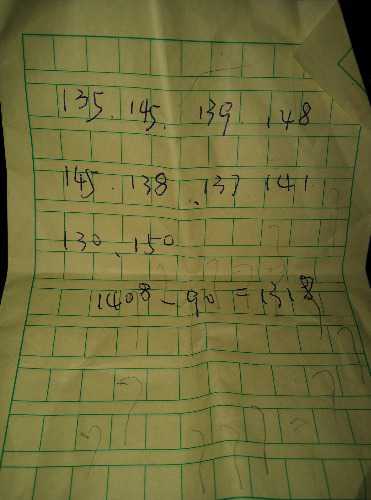 135. 145. 139. 148
145. 138. 137 141
130. 150
1408-90=1318